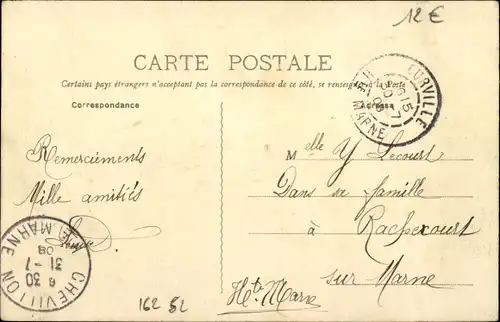 12 €
CARTE POSTALE
Certains pays étrangers n'acceptent pas la correspondance de ce côté, se renseigner à la Poste
Correspondance
Adresse
CURVILLE
Hte MARNE
6 15
Remerciements
Mille amitiés
Melle Y Lecourt
Dans sa famille
à Rachecourt
sur Marne
Hte Marne
CHEVILLON
Hte MARNE
6 30
31 - 7
08
162 52